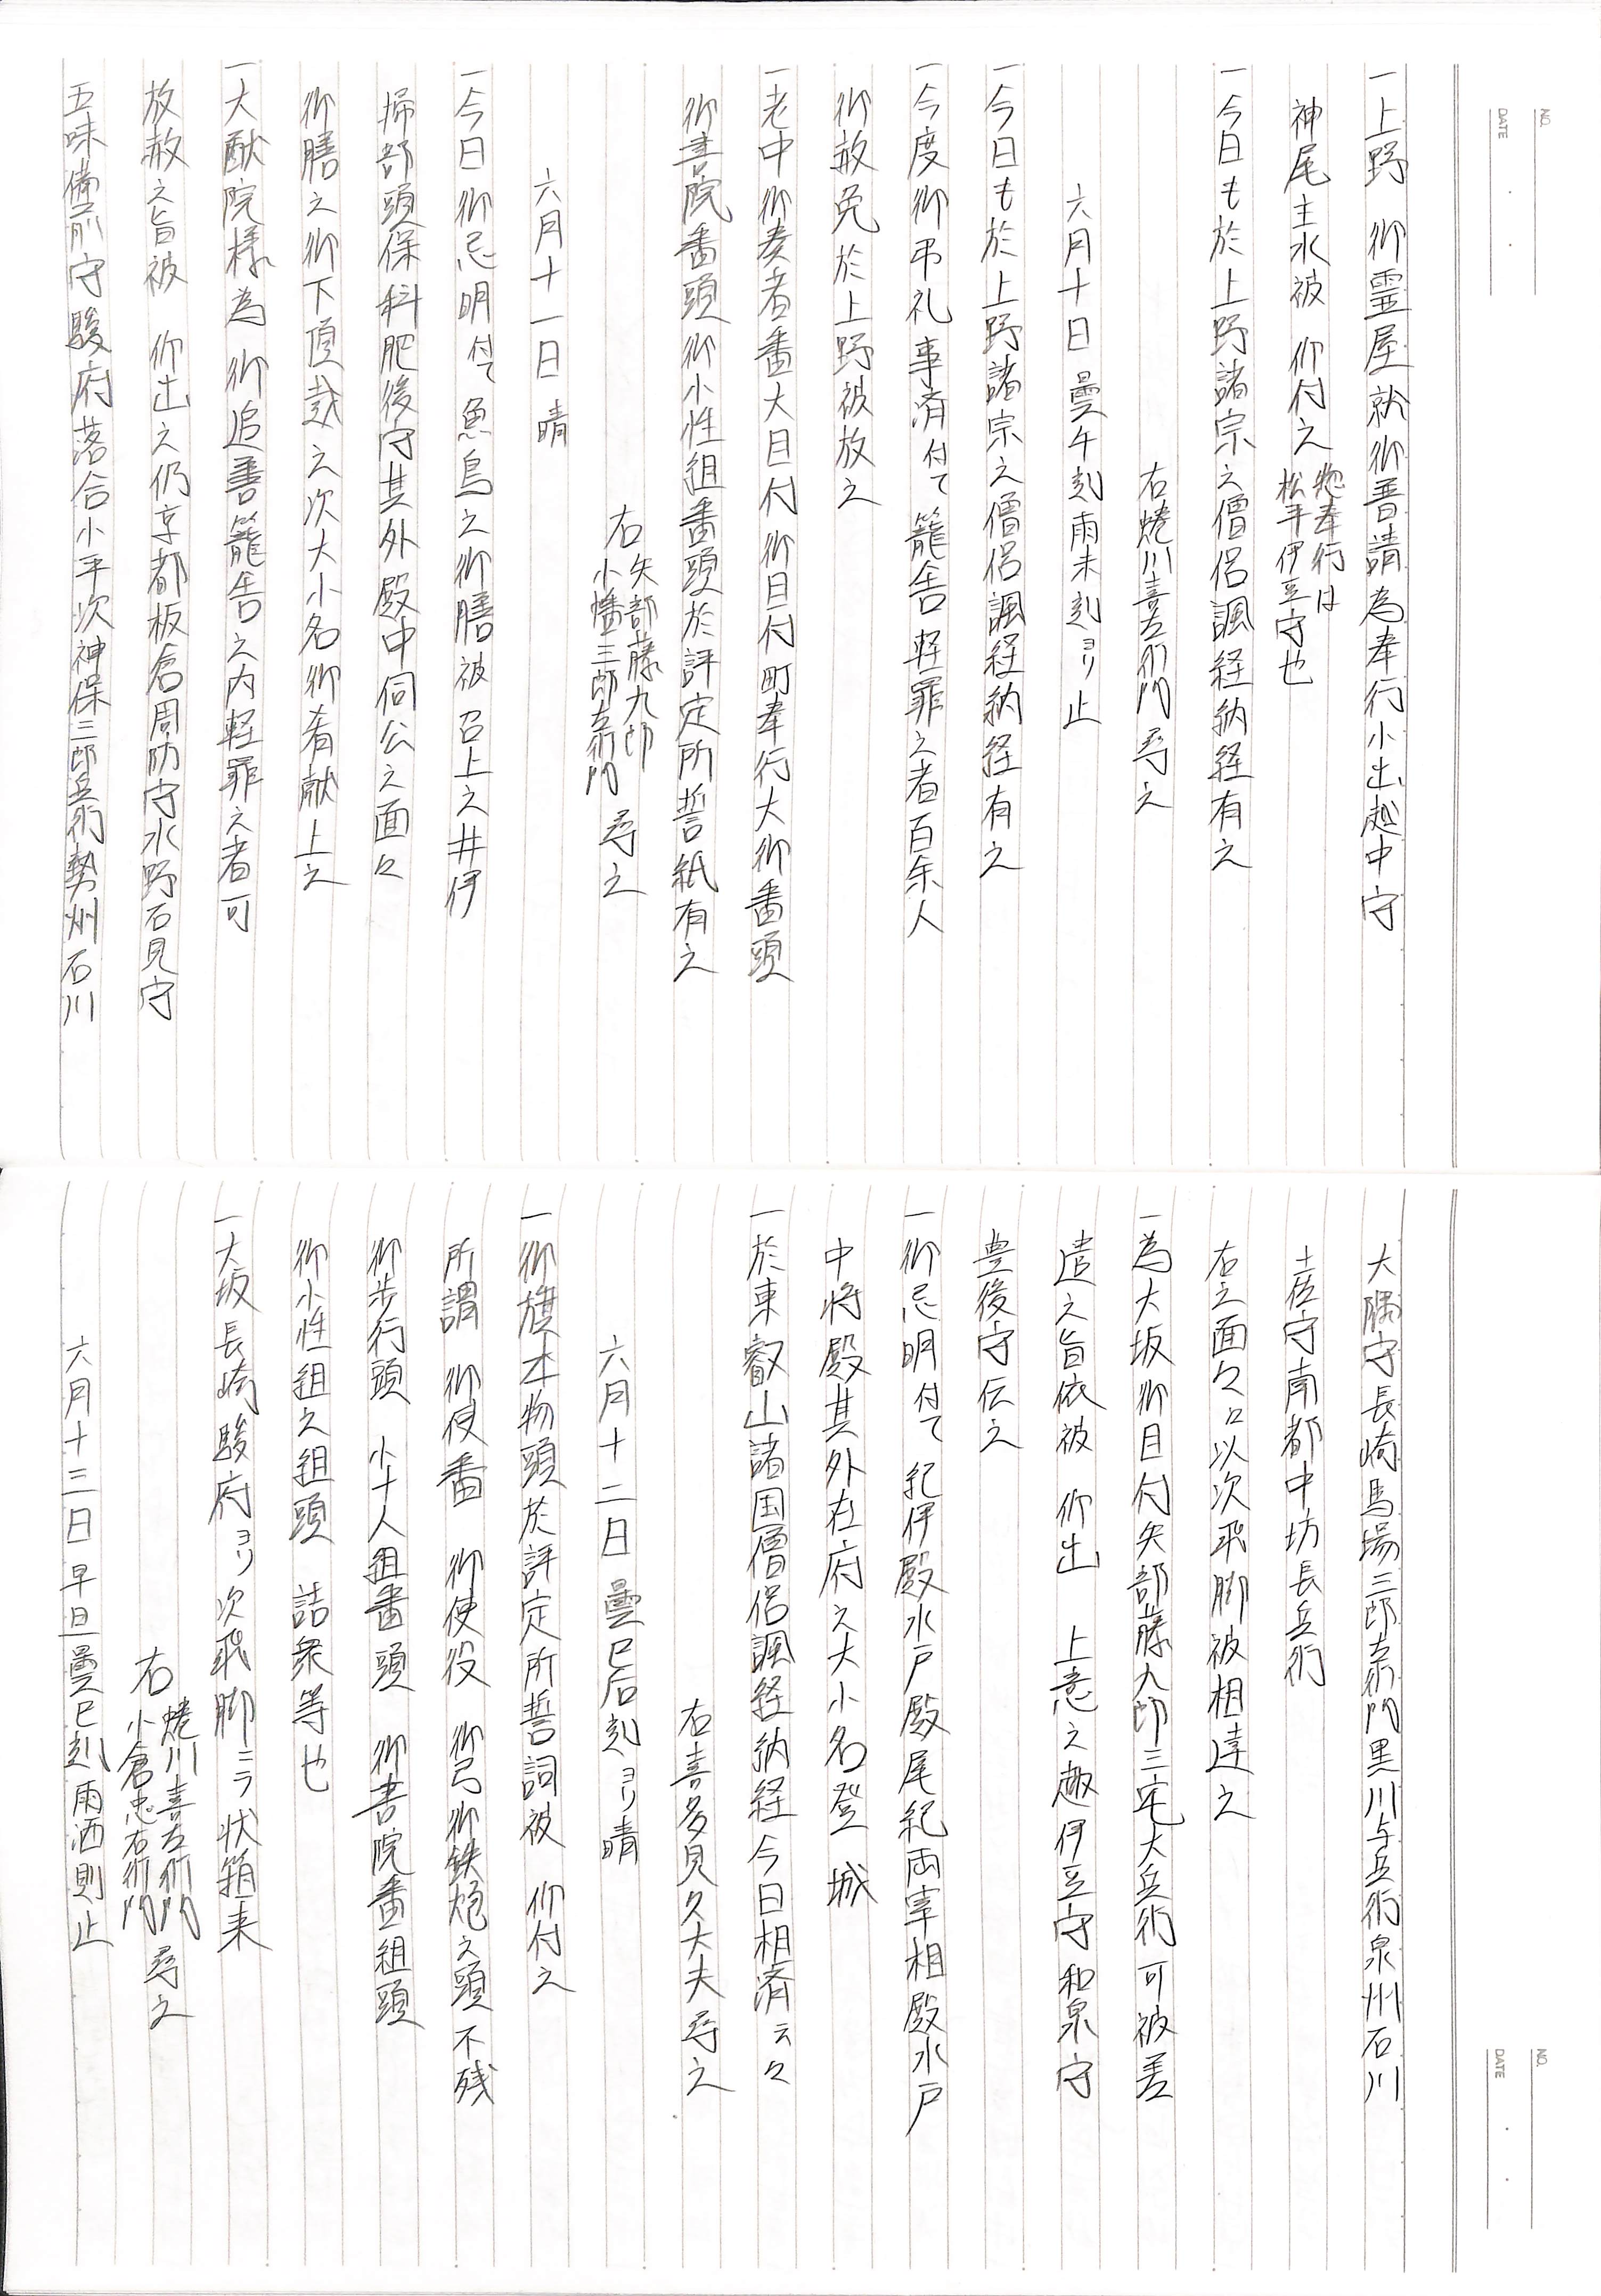 NO.
DATE
一上野　御霊屋就御普請為奉行小出越中守
神尾主水被　仰付之 惣奉行は
松平伊豆守也
一今日も於上野諸宗之僧侶諷経納経有之
右蜷川喜左衛門尋之
六月十日　曇午刻雨未刻ヨリ止
一今日も於上野諸宗之僧侶諷経納経有之
一今度御弔礼事済付て籠舎軽罪之者百余人
御赦免於上野被放之
一老中御奏者番大目付御目付町奉行大御番頭
御書院番頭御小性組番頭於評定所誓紙有之
右 矢部藤九郎
小幡三郎左衛門 尋之
六月十一日　晴
一今日御忌明付て魚鳥之御膳被召上之井伊
掃部頭保科肥後守其外殿中伺公之面々
御膳之御下頂戴之次大小名御肴献上之
一大猷院様為　御追善籠舎之内軽罪之者可
放赦之旨被　仰出之仍京都板倉周防守水野石見守
五味備前守駿府落合小平次神保三郎兵衛勢州石川
NO.
DATE
大隅守長崎馬場三郎左衛門黒川与兵衛泉州石川
土佐守南都中坊長兵衛
右之面々に以次飛脚被相達之
一為大坂御目付矢部藤九郎三宅大兵衛可被差
遣之旨依被　仰出　上意之趣伊豆守和泉守
豊後守伝之
一御忌明付て　紀伊殿水戸殿尾紀両宰相殿水戸
中将殿其外在府之大小名登　城
一於東叡山諸国僧侶諷経納経今日相済云々
右喜多見久大夫尋之
六月十二日　曇巳后刻ヨリ晴
一御旗本物頭於評定所誓詞被　仰付之
所謂　御使番　御使役　御弓御鉄炮之頭不残
御歩行頭　小十人組番頭　御書院番組頭
御小性組之組頭　詰衆等也
一大坂長崎駿府ヨリ次飛脚ニテ状箱来
右 蜷川喜左衛門
小倉忠右衛門 尋之
六月十三日　早旦曇巳刻雨洒則止